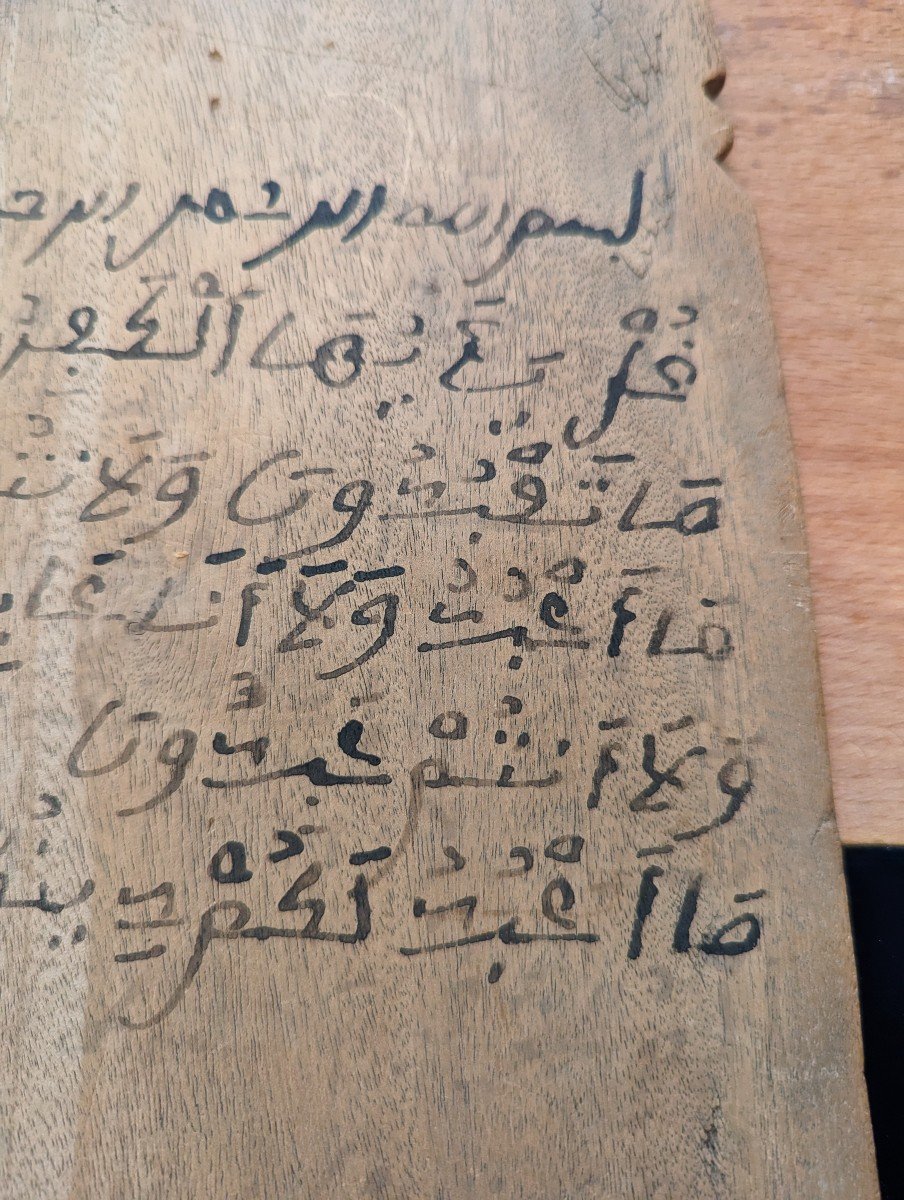 بسم الله الرحمن الرحـ
قُلْ يَـٰٓأَيُّهَا اَلْكَـٰفِرُ
مَا تَعْبُدُونَ وَلَا
مَا أَعْبُدُ وَلَا أَنَا عَابِـ
وَلَا أَنتُمْ عَـٰبِدُونَ
مَا أَعْبُدُ لَكُمْ دِينُـ